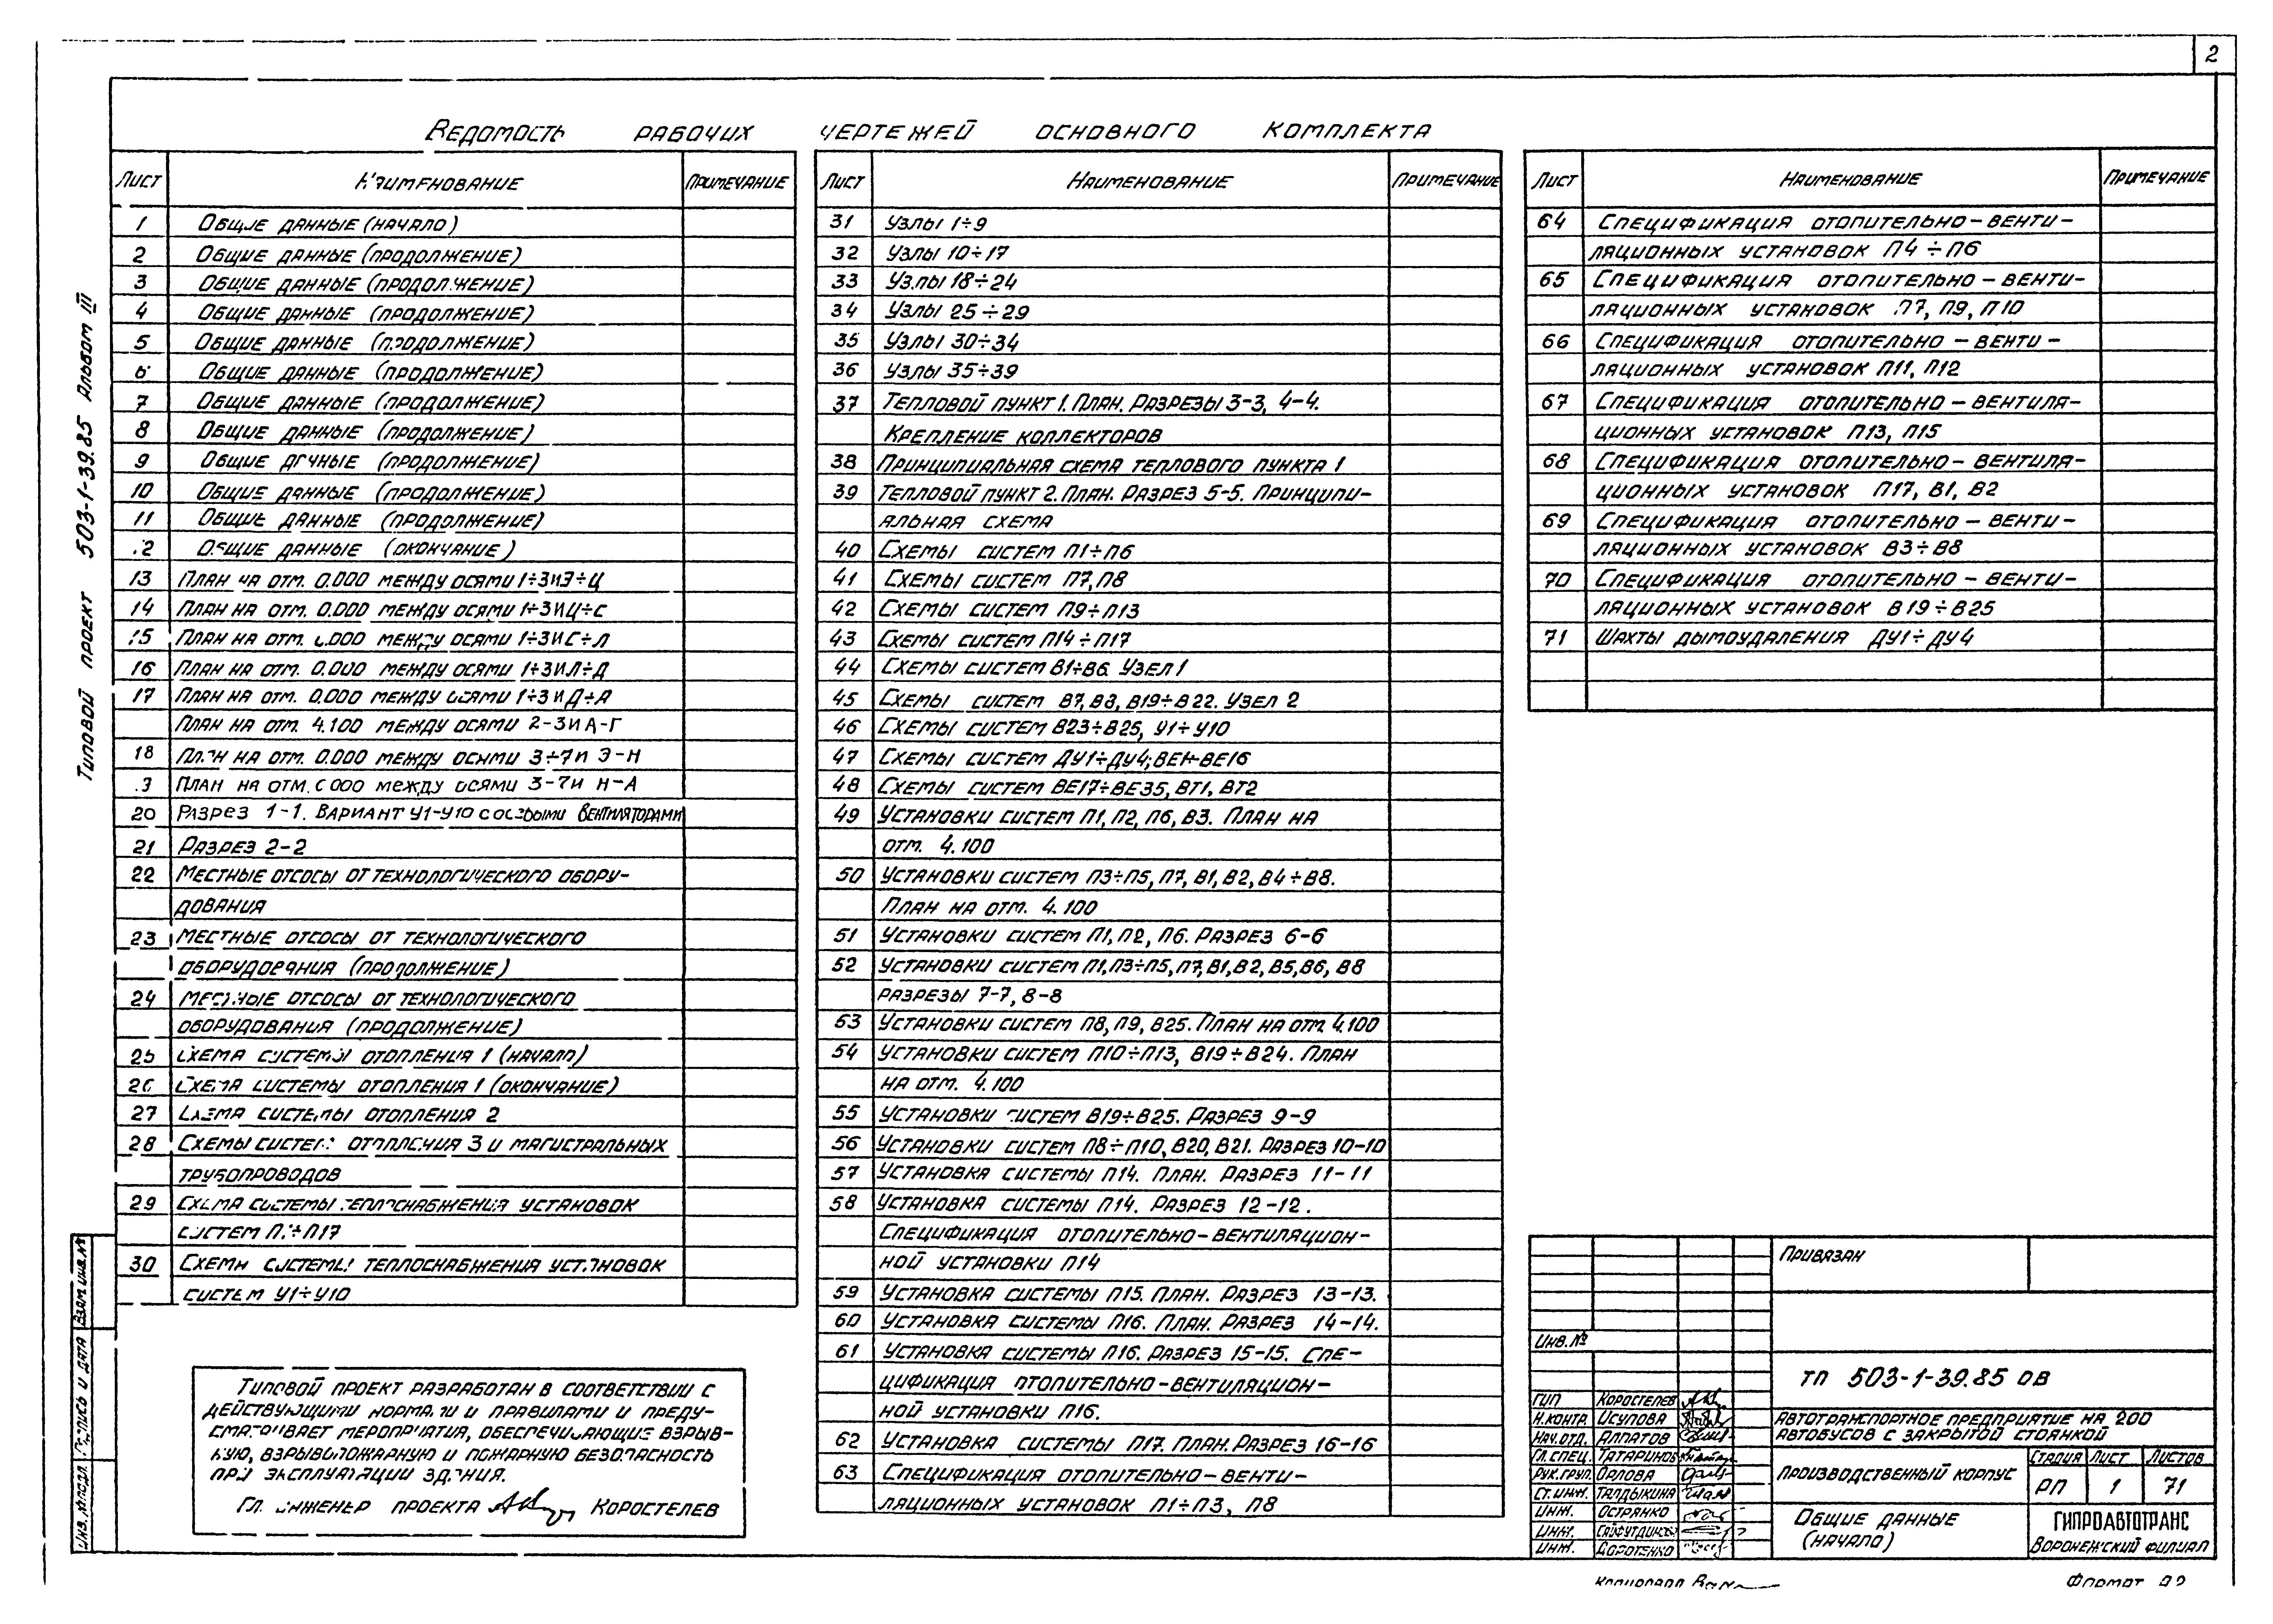 2
Типовой проект 503-1-39.85 Альбом III
Ведомость рабочих чертежей основного комплекта
Лист Наименование Примечание
1 Общие данные (начало)
2 Общие данные (продолжение)
3 Общие данные (продолжение)
4 Общие данные (продолжение)
5 Общие данные (продолжение)
6 Общие данные (продолжение)
7 Общие данные (продолжение)
8 Общие данные (продолжение)
9 Общие данные (продолжение)
10 Общие данные (продолжение)
11 Общие данные (продолжение)
12 Общие данные (окончание)
13 План на отм. 0.000 между осями 1÷3 и Э÷Ц
14 План на отм. 0.000 между осями 1÷3 и Ц÷С
15 План на отм. 0.000 между осями 1÷3 и С÷Л
16 План на отм. 0.000 между осями 1÷3 и Л÷Д
17 План на отм. 0.000 между осями 1÷3 и Д÷А
План на отм. 4.100 между осями 2-3 и А-Г
18 План на отм. 0.000 между осями 3÷7 и Э-Н
19 План на отм. 0.000 между осями 3-7 и Н-А
20 Разрез 1-1. Вариант У1-У10 с осевыми вентиляторами
21 Разрез 2-2
22 Местные отсосы от технологического обору-
дования
23 Местные отсосы от технологического
оборудования (продолжение)
24 Местные отсосы от технологического
оборудования (продолжение)
25 Схема системы отопления 1 (начало)
26 Схема системы отопления 1 (окончание)
27 Схема системы отопления 2
28 Схемы систем отопления 3 и магистральных
трубопроводов
29 Схема системы теплоснабжения установок
систем П1÷П17
30 Схемы системы теплоснабжения установок
систем У1÷У10
Типовой проект разработан в соответствии с
действующими нормами и правилами и преду-
сматривает мероприятия, обеспечивающие взрыв-
ную, взрывопожарную и пожарную безопасность
при эксплуатации здания.
Гл. инженер проекта Коростелев
Лист Наименование Примечание
31 Узлы 1÷9
32 Узлы 10÷17
33 Узлы 18÷24
34 Узлы 25÷29
35 Узлы 30÷34
36 Узлы 35÷39
37 Тепловой пункт 1. План. Разрезы 3-3, 4-4.
Крепление коллекторов
38 Принципиальная схема теплового пункта 1
39 Тепловой пункт 2. План. Разрез 5-5. Принципи-
альная схема
40 Схемы систем П1÷П6
41 Схемы систем П7, П8
42 Схемы систем П9÷П13
43 Схемы систем П14÷П17
44 Схемы систем В1÷В6. Узел 1
45 Схемы систем В7, В8, В19÷В22. Узел 2
46 Схемы систем В23÷В25, У1÷У10
47 Схемы систем ДУ1÷ДУ4; ВЕ1÷ВЕ16
48 Схемы систем ВЕ17÷ВЕ35, ВТ1, ВТ2
49 Установки систем П1, П2, П6, В3. План на
отм. 4.100
50 Установки систем П3÷П5, П7, В1, В2, В4÷В8.
План на отм. 4.100
51 Установки систем П1, П2, П6. Разрез 6-6
52 Установки систем П1, П3÷П5, П7, В1, В2, В5, В6, В8
Разрезы 7-7, 8-8
53 Установки систем П8, П9, В25. План на отм. 4.100
54 Установки систем П10÷П13, В19÷В24. План
на отм. 4.100
55 Установки систем В19÷В25. Разрез 9-9
56 Установки систем П8÷П10, В20, В21. Разрез 10-10
57 Установка системы П14. План. Разрез 11-11
58 Установка системы П14. Разрез 12-12.
Спецификация отопительно-вентиляцион-
ной установки П14
59 Установка системы П15. План. Разрез 13-13.
60 Установка системы П16. План. Разрез 14-14.
61 Установка системы П16. Разрез 15-15. Спе-
цификация отопительно-вентиляцион-
ной установки П16.
62 Установка системы П17. План. Разрез 16-16
63 Спецификация отопительно-венти-
ляционных установок П1÷П3, П8
Лист Наименование Примечание
64 Спецификация отопительно-венти-
ляционных установок П4÷П6
65 Спецификация отопительно-венти-
ляционных установок П7, П9, П10
66 Спецификация отопительно-венти-
ляционных установок П11, П12
67 Спецификация отопительно-вентиля-
ционных установок П13, П15
68 Спецификация отопительно-вентиля-
ционных установок П17, В1, В2
69 Спецификация отопительно-венти-
ляционных установок В3÷В8
70 Спецификация отопительно-венти-
ляционных установок В19÷В25
71 Шахты дымоудаления ДУ1÷ДУ4
Привязан
Инв.№
ТП 503-1-39.85 ОВ
ГИП Коростелев
Н.контр. Исупова
Нач.отд. Алпатов
Гл.спец. Татаринов
Рук.груп. Орлова
Ст.инж. Талдыкина
Инж. Острянко
Инж. Сайфутдинов
Инж. Доротенко
Автотранспортное предприятие на 200
автобусов с закрытой стоянкой
Производственный корпус
Стадия Лист Листов
РП 1 71
Общие данные
(начало)
ГИПРОАВТОТРАНС
Воронежский филиал
Инв.№подл. Подпись и дата Взам.инв.№
Копировал
Формат А2